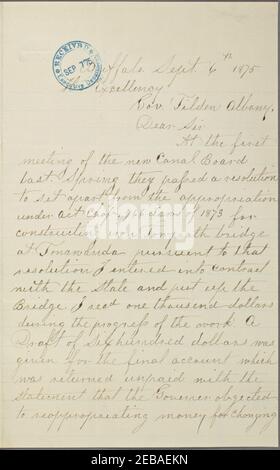 Buffalo Sept. 6th 1875
RECEIVED
SEP 7
His Excellency
Gov. Tilden Albany.
Dear Sir
At the first
meeting of the new Canal Board
last Spring they passed a resolution
to set apart from the appropriation
under act Chap. 766 Laws of 1873 for
constructing bridge
at Tonawanda pursuant to that
resolution I entered into contract
with the State and put up the
Bridge I recd one thousand dollars
during the progress of the work. A
Draft of Six hundred dollars was
given for the final account which
was returned unpaid with the
Statement that the Governor objected
to reappropriating money for changing
alamy
Image ID: 2EBAEKN
www.alamy.com